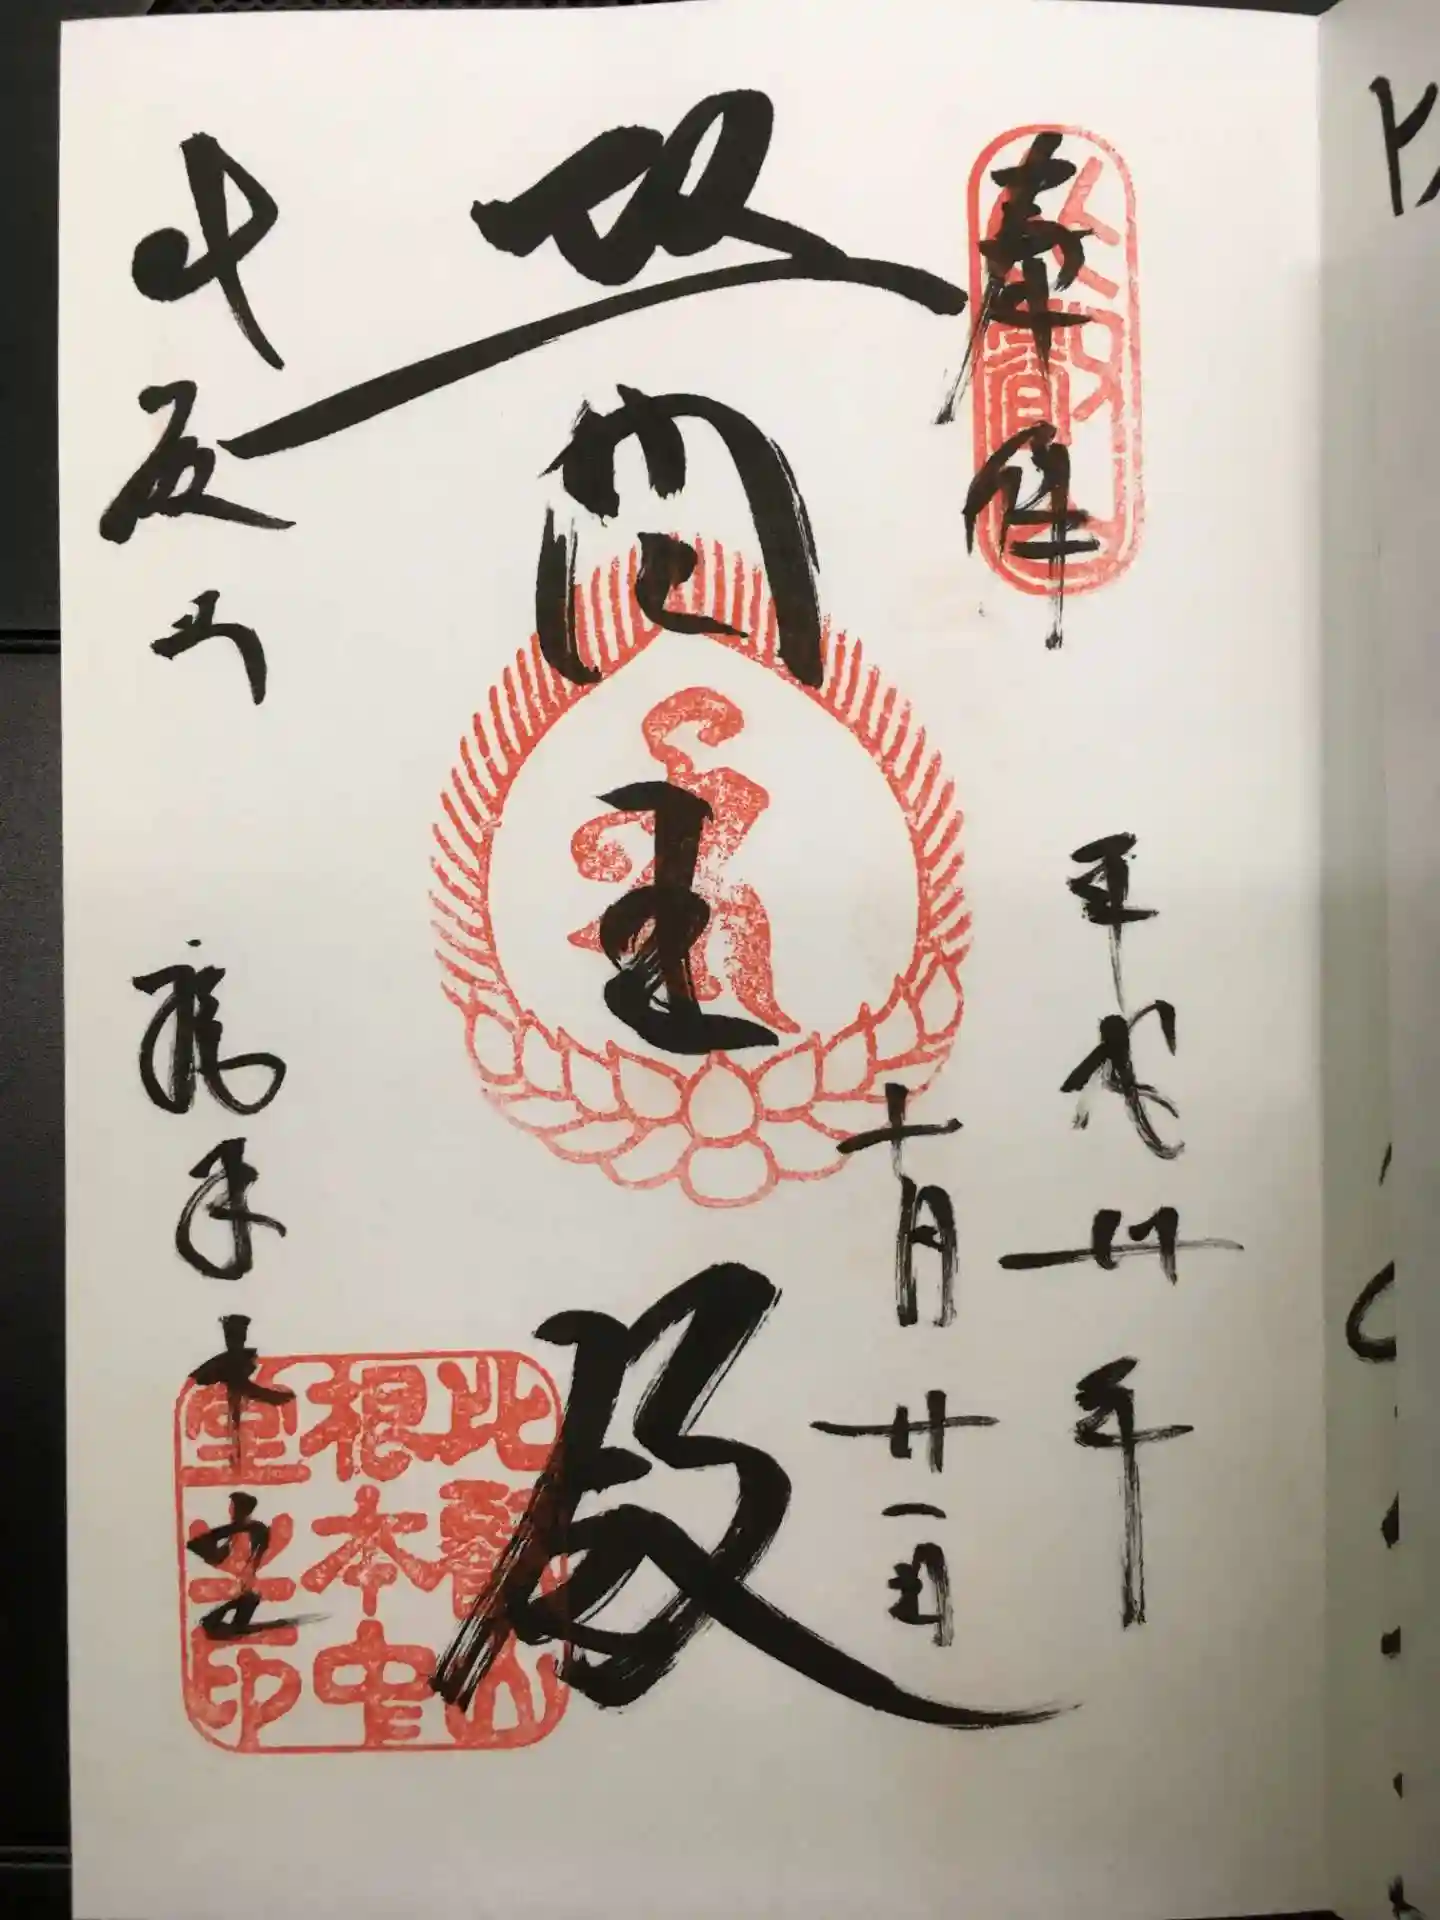 奉拝
平成卅年
十月廿一日
醫王殿
比叡山
根本中堂
比叡山
根本中
堂之印